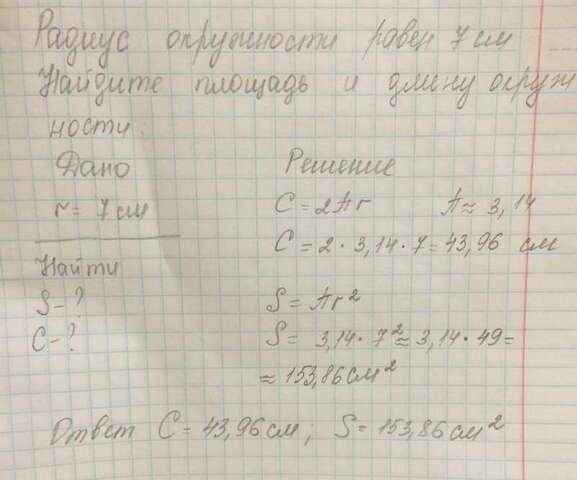 Радиус окружности равен 7 см
Найдите площадь и длину окруж
ности.
Дано
r = 7 см
Найти
S - ?
C - ?
Решение
C = 2πr π ≈ 3,14
C = 2 · 3,14 · 7 = 43,96 см
S = πr²
S = 3,14 · 7² ≈ 3,14 · 49 =
≈ 153,86 см²
Ответ C = 43,96 см; S = 153,86 см²